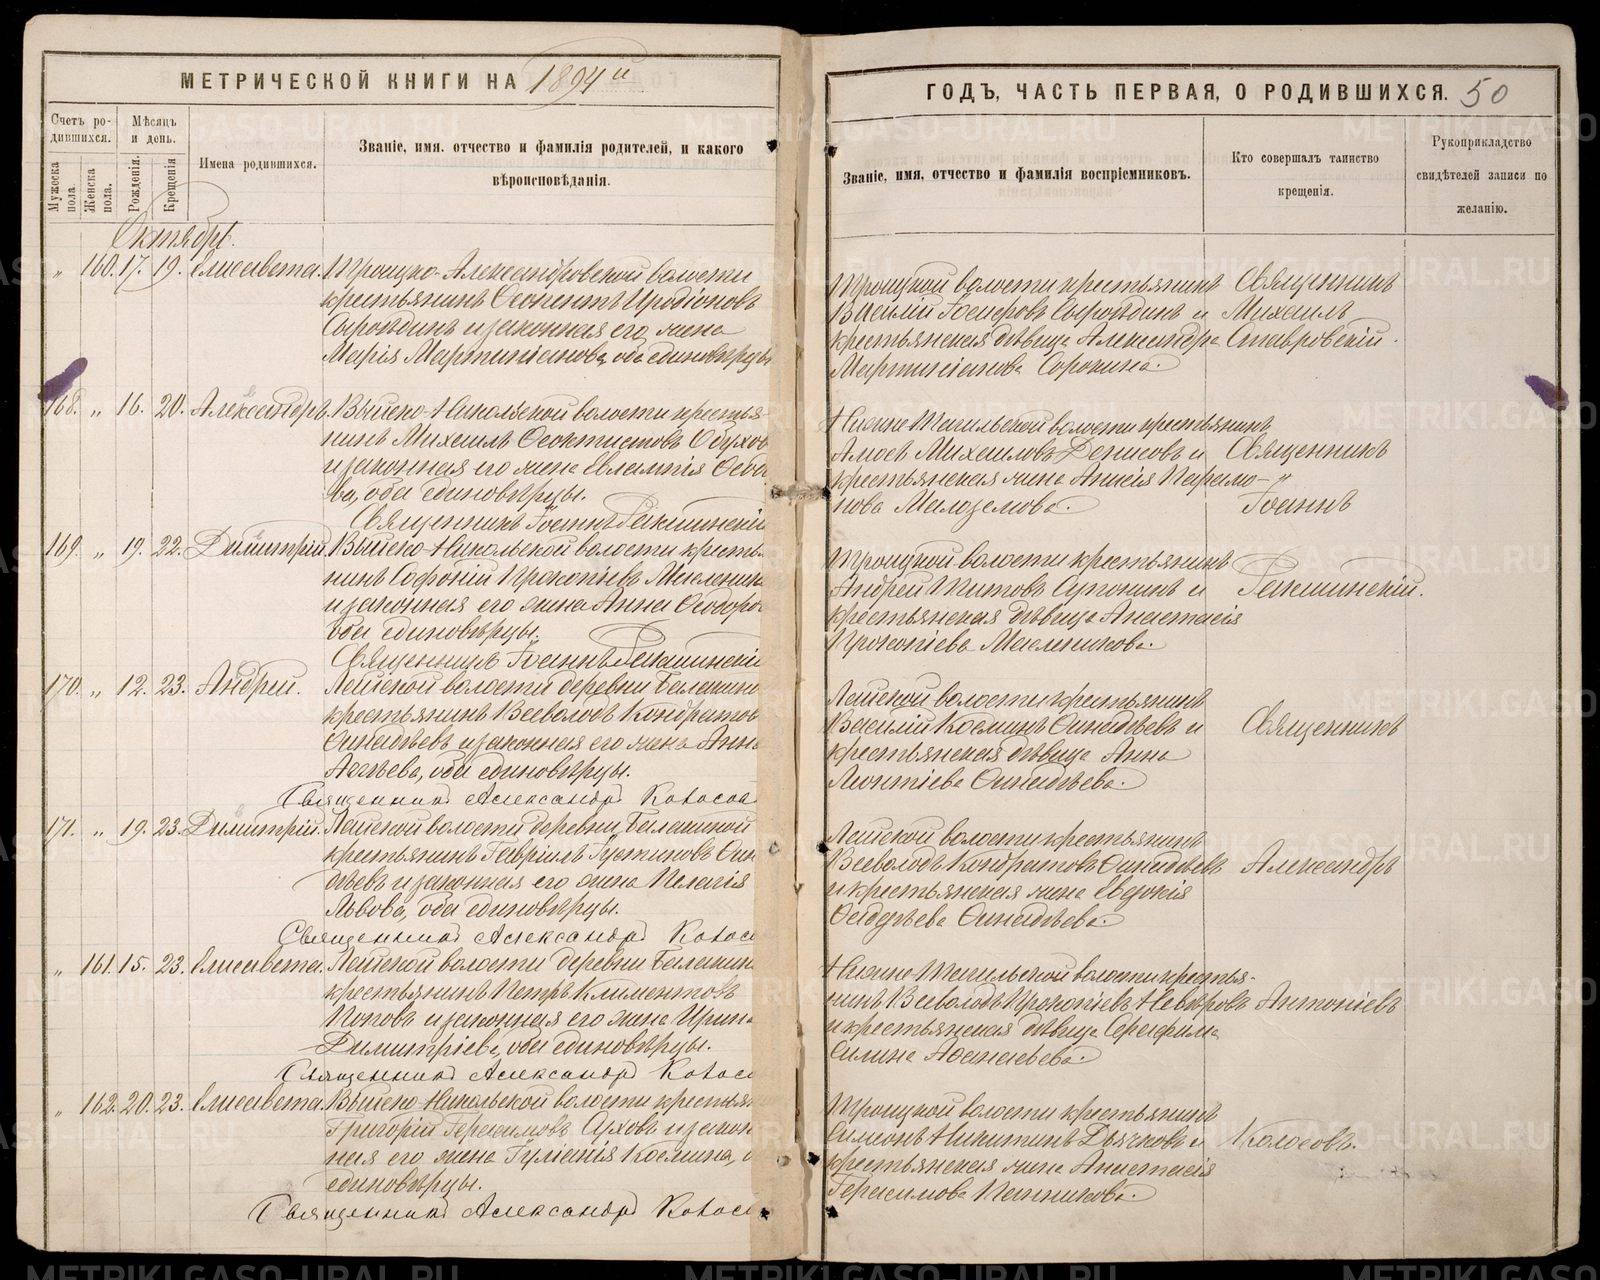 МЕТРИЧЕСКОЙ КНИГИ НА 1894 й
Счетъ ро-
дившихся.
Мѣсяцъ
и день.
Мужеска
пола.
Женска
пола.
Рожденія.
Крещенія
Имена родившихся.
Званіе, имя. отчество и фамилія родителей, и какого
вѣроисповѣданія.
Октябрь.
„ 160. 17. 19. Елисавета. Троицко-Александровской волости
крестьянинъ Феоктистъ Иродіоновъ
и законная его жена
Марія Мартиніанова, оба единовѣрцы
168. „ 16. 20. Александръ. Выйско-Никольской волости крестья-
нинъ Михаилъ Феоктистовъ Обухов
и законная его жена Евлампія
ва, оба единовѣрцы.
Священникъ Іоаннъ
169. „ 19. 22. Димитрій. Выйско-Никольской волости кресть-
нинъ Софоній Прокопіевъ
и законная его жена Анна Феодоро
оба единовѣрцы.
Священникъ Іоаннъ
170. „ 12. 23. Андрей. Лайской волости деревни Балакино
крестьянинъ Всеволодъ Кондратов
и законная его жена Анна
Аггѣева, оба единовѣрцы.
Священникъ Александръ Колосов
171. „ 19. 23. Димитрій. Лайской волости деревни Балакиной
крестьянинъ Гавріилъ Іустиновъ
и законная его жена Пелагія
Львова, оба единовѣрцы.
Священникъ Александръ Колосо
„ 161. 15. 23. Елисавета. Лайской волости деревни Балакин
крестьянинъ Петръ Климентовъ
Поповъ и законная его жена Ирина
Димитріева, оба единовѣрцы.
Священникъ Александръ Колосо
„ 162. 20. 23. Елисавета. Выйско-Никольской волости крестьян
Григорій Герасимовъ и закон
ная его жена Космина,
единовѣрцы.
Священникъ Александръ Колосо
ГОДЪ, ЧАСТЬ ПЕРВАЯ, О РОДИВШИХСЯ. 50
Званіе, имя, отчество и фамилія воспріемниковъ.
Кто совершалъ таинство
крещенія.
Рукоприкладство
свидѣтелей записи по
желанію.
Троицкой волости крестьянинъ Священникъ
Василій Іосифовъ и Михаилъ
крестьянская дѣвица Александра Ставровскій.
Мартиніанова Сорокина.
Нижне-Тагильской волости крестьянинъ
Амосъ Михаиловъ Денисовъ и Священникъ
крестьянская жена Анисія Парамо-
нова Малоземова. Іоаннъ
Троицкой волости крестьянинъ
Андрей Титовъ и
крестьянская дѣвица Анастасія
Прокопіева
Лайской волости крестьянинъ
Василій Косминъ и Священникъ
крестьянская дѣвица Анна
Леонтіева
Лайской волости крестьянинъ
Всеволодъ Кондратовъ Александръ
и крестьянская жена Евдокія
Нижне-Тагильской волости крестья-
нинъ Всеволодъ Прокопіевъ Антоніевъ
и крестьянская дѣвица Серафима
Силина
Троицкой волости крестьянинъ
Симеонъ Никитинъ Дьячковъ и Колосовъ.
крестьянская жена Анастасія
Герасимова
METRIKI.GASO-URAL.RU